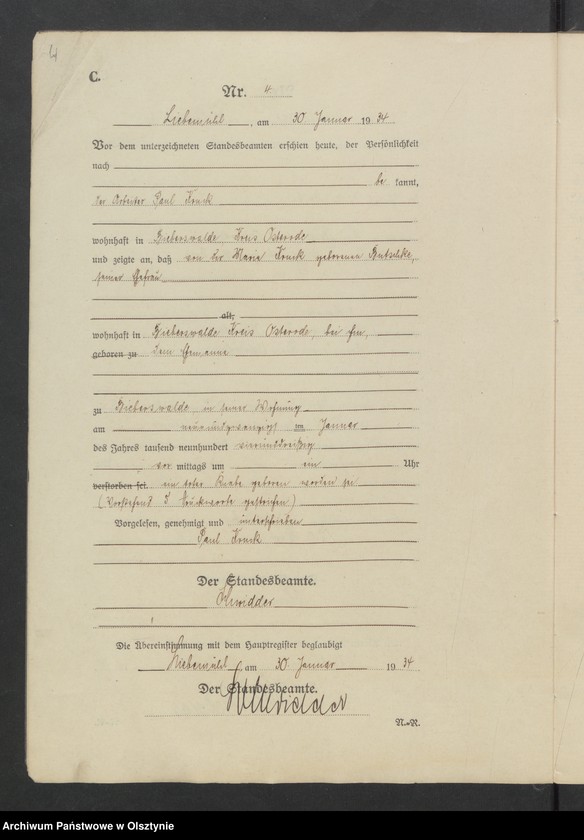 4
C.
Nr. 4
Liebemühl, am 30 Januar 1934
Vor dem unterzeichneten Standesbeamten erschien heute, der Persönlichkeit
nach
be kannt,
der Arbeiter Paul Kruck
wohnhaft in Bieberswalde Kreis Osterode
und zeigte an, daß von der Maria Kruck geborenen
seiner Ehefrau
alt,
wohnhaft in Bieberswalde Kreis Osterode, bei ihm,
geboren zu dem Ehemanne
zu Bieberswalde in seiner Wohnung
am neunundzwanzigsten Januar
des Jahres tausend neunhundert vierunddreißig
vor mittags um ein Uhr
verstorben sei. ein toter Knabe geboren worden sei
(Vorstehend 5 Druckworte gestrichen)
Vorgelesen, genehmigt und unterschrieben
Paul Kruck
Der Standesbeamte.
Die Übereinstimmung mit dem Hauptregister beglaubigt
Liebemühl, am 30 Januar 1934
Der Standesbeamte.
N.-R.
Archiwum Państwowe w Olsztynie